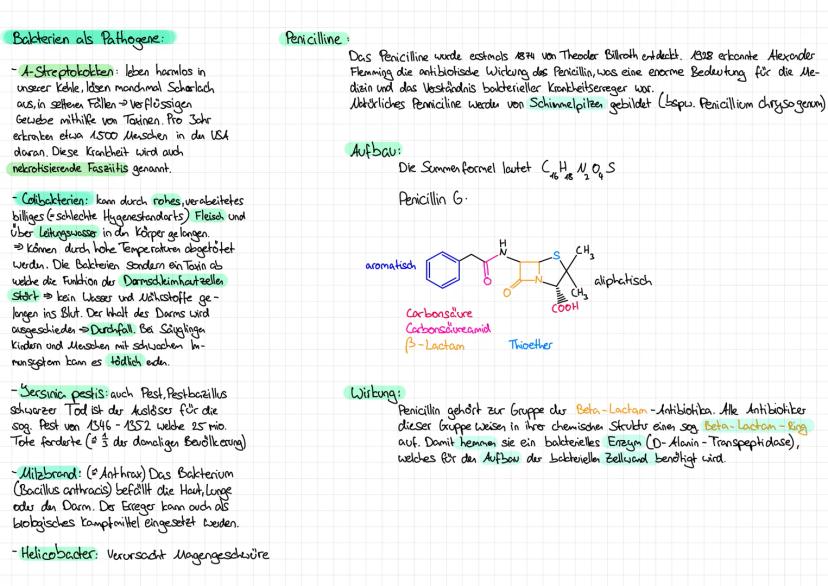 Bakterien als Pathogene:
- A-Streptokokken: leben harmlos in
unserer Kehle, lösen manchmal Scharlach
aus, in seltenen Fällen → Verflüssigen
Gewebe mithilfe von Toxinen. Pro Jahr
erkranken etwa 1500 Menschen in den USA
daran. Diese Krankheit wird auch
nekrotisierende Fasziitis genannt.
- Colibakterien: kann durch rohes, verarbeitetes
billiges (= schlechte Hygenestandarts) Fleisch und
über Leitungswasser in den Körper gelangen.
⇒ Können durch hohe Temperaturen abgetötet
werden. Die Bakterien sondern ein Toxin ab
welche die Funktion der Darmschleimhautzellen
stört ⇒ kein Wasser und Nährstoffe ge-
langen ins Blut. Der Inhalt des Darms wird
ausgeschieden → Durchfall. Bei Säuglingen
Kindern und Menschen mit schwachem Im-
munsystem kann es tödlich enden.
- Yersinia pestis: auch Pest, Pestbazillus
schwarzer Tod ist der Auslöser für die
sog. Pest von 1346 - 1352 welche 25 mio.
Tote forderte (≙ 1/3 der damaligen Bevölkerung)
- Milzbrand: (≙ Anthrax) Das Bakterium
(Bacillus anthracis) befällt die Haut, Lunge
oder den Darm. Der Erreger kann auch als
biologisches Kampfmittel eingesetzt werden.
- Helicobacter: Verursacht Magengeschwüre
Penicilline:
Das Penicilline wurde erstmals 1874 von Theodor Billroth entdeckt. 1928 erkannte Alexander
Flemming die antibiotische Wirkung des Penicillin, was eine enorme Bedeutung für die Me-
dizin und das Verständnis bakterieller Krankheitserreger war.
Natürliches Penniciline werden von Schimmelpilzen gebildet (bspw. Penicillium chrysogenum)
Aufbau:
Die Summenformel lautet C₁₆H₁₈N₂O₄S
Penicillin G:
aromatisch
O
H
N
O
N
S
CH₃
CH₃
COOH
aliphatisch
Carbonsäure
Carbonsäureamid
β-Lactam
Thioether
Wirkung:
Penicillin gehört zur Gruppe der Beta-Lactam-Antibiotika. Alle Antibiotiker
dieser Gruppe weisen in ihrer chemischen Struktur einen sog. Beta-Lactam-Ring
auf. Damit hemmen sie ein bakterielles Enzym (D-Alanin-Transpeptidase),
welches für den Aufbau der bakteriellen Zellwand benötigt wird.